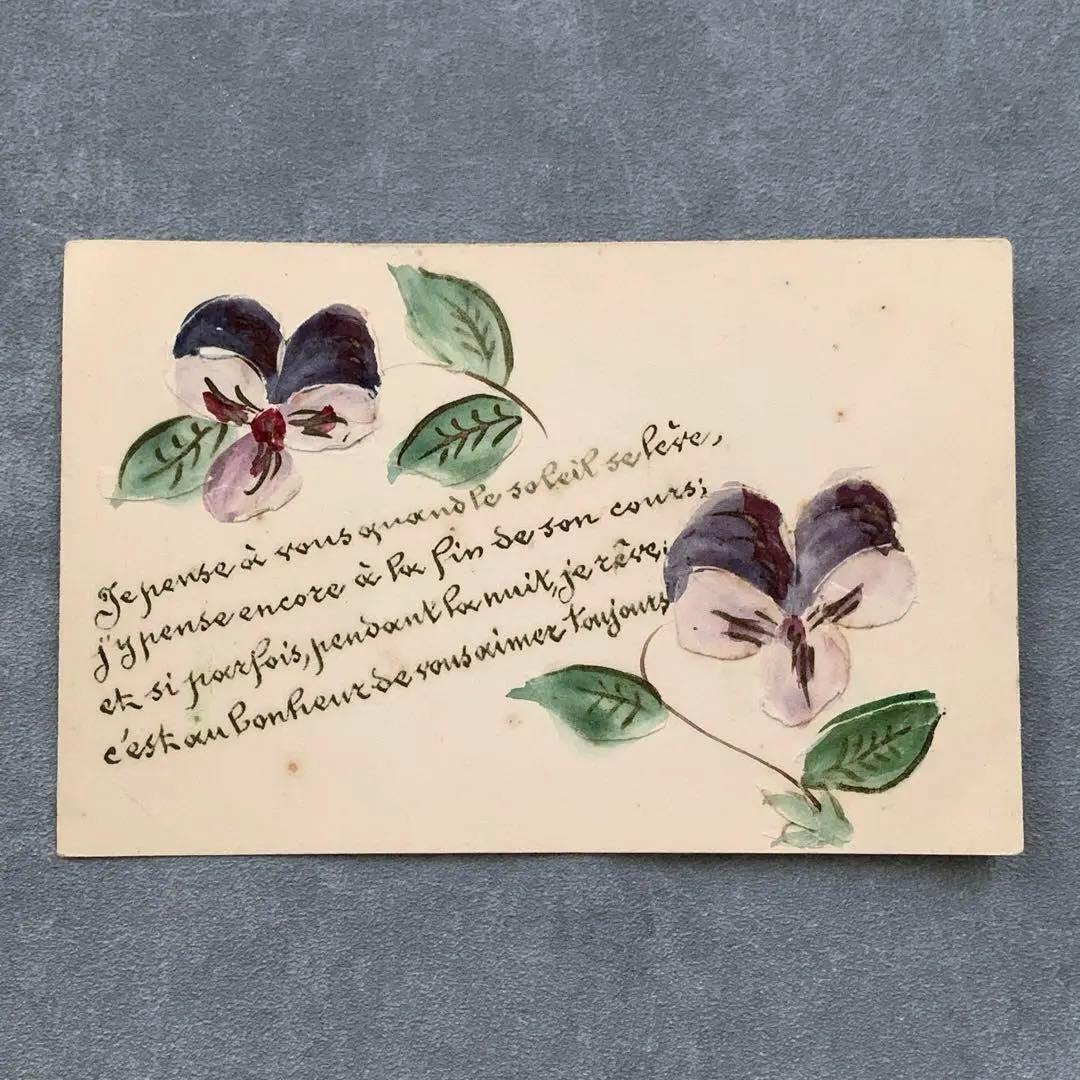 Je pense à vous quand le soleil se lève,
j'y pense encore à la fin de son cours;
et si parfois, pendant la nuit, je rêve;
c'est au bonheur de vous aimer toujours